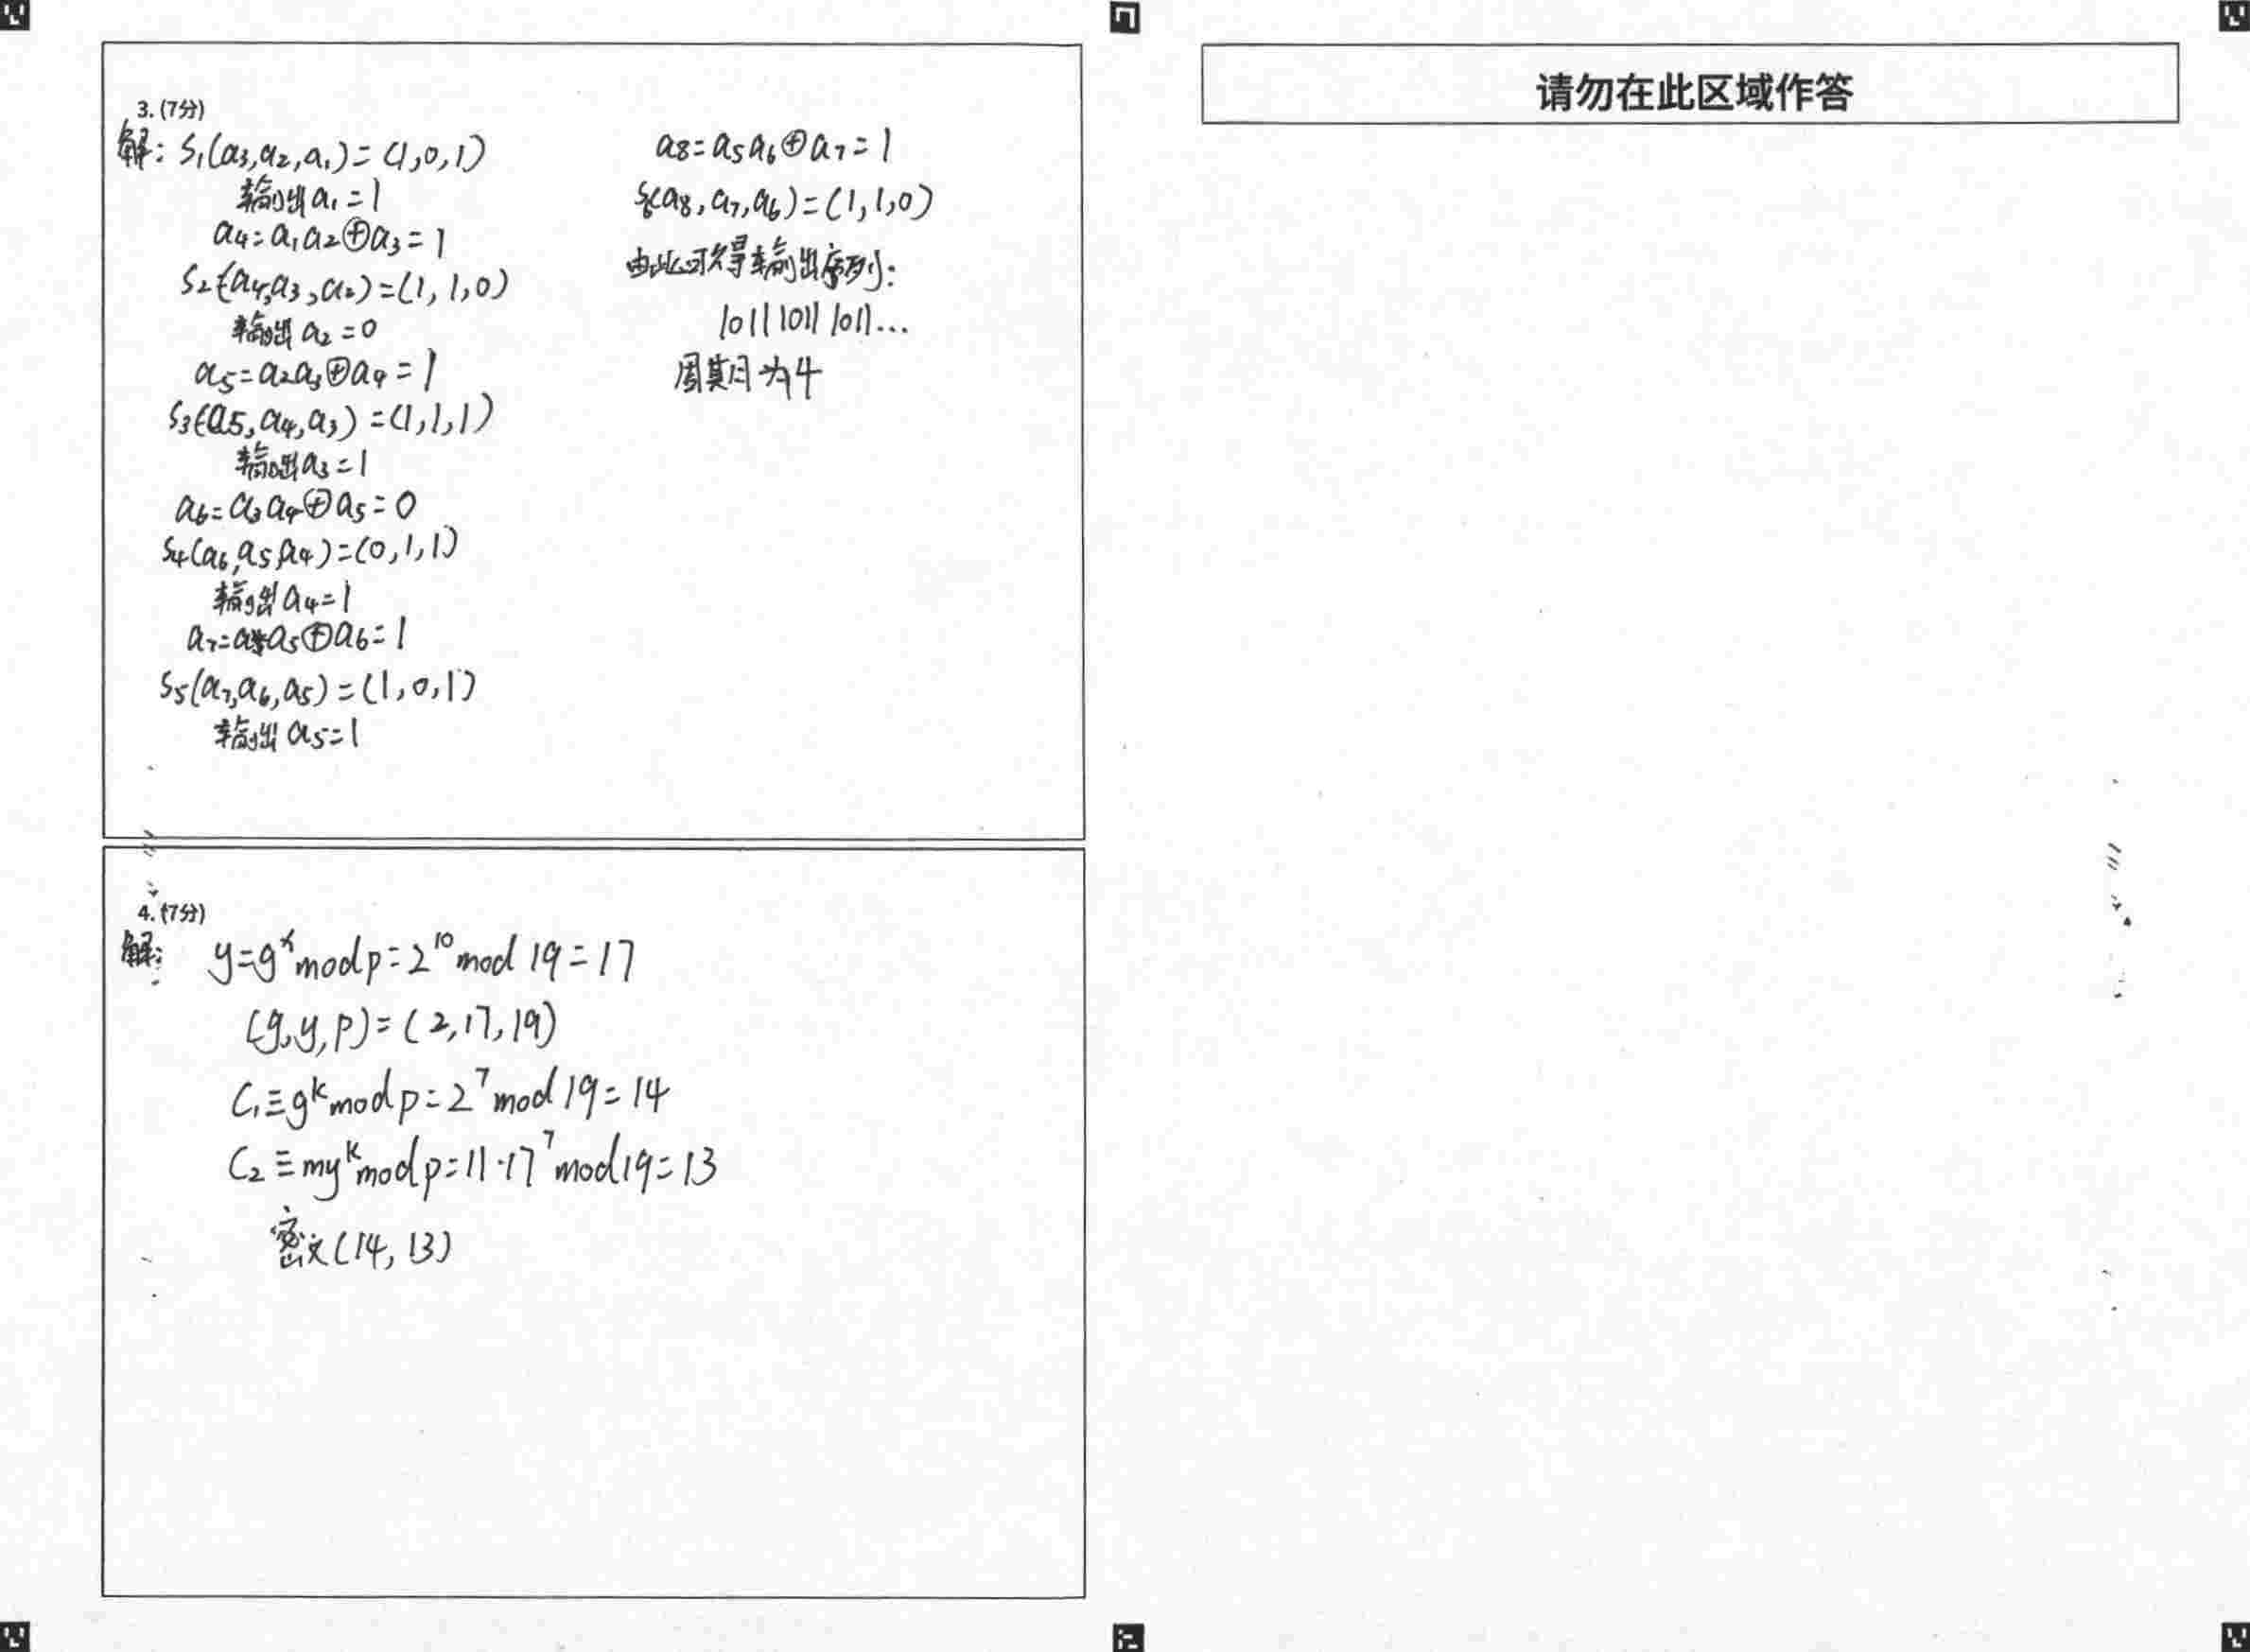 3. (7分)
解: S₁(a₃,a₂,a₁)=(1,0,1)
输出a₁=1
a₄=a₁a₂⊕a₃=1
S₂(a₄,a₃,a₂)=(1,1,0)
输出a₂=0
a₅=a₂a₃⊕a₄=1
S₃(a₅,a₄,a₃)=(1,1,1)
输出a₃=1
a₆=a₃a₄⊕a₅=0
S₄(a₆,a₅,a₄)=(0,1,1)
输出a₄=1
a₇=a₄a₅⊕a₆=1
S₅(a₇,a₆,a₅)=(1,0,1)
输出a₅=1
a₈=a₅a₆⊕a₇=1
S₆(a₈,a₇,a₆)=(1,1,0)
由此可得输出序列:
1011 1011 1011...
周期为4
4. (7分)
解: y=gˣmodp=2¹⁰mod 19=17
(g,y,p)=(2,17,19)
C₁≡gᵏmodp=2⁷mod19=14
C₂≡myᵏmodp=11·17⁷mod19=13
密文(14,13)
请勿在此区域作答